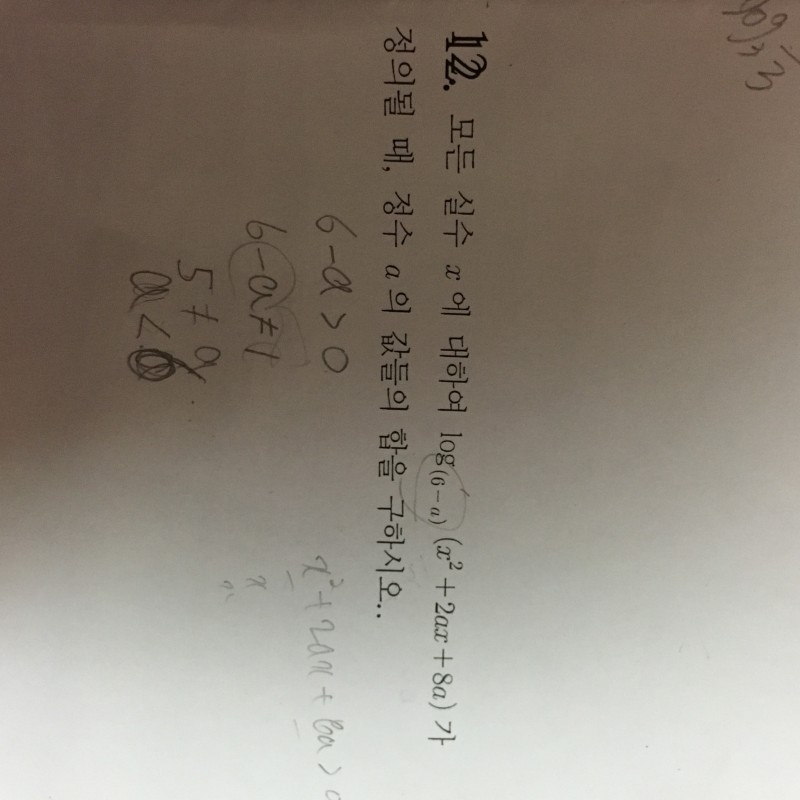 12. 모든 실수 x에 대하여 log₍₆₋ₐ₎ (x² + 2ax + 8a) 가
정의될 때, 정수 a의 값들의 합을 구하시오..
6-a > 0
6-a ≠ 1
5 ≠ a
a < 6
x² + 2ax + 8a > 0
x